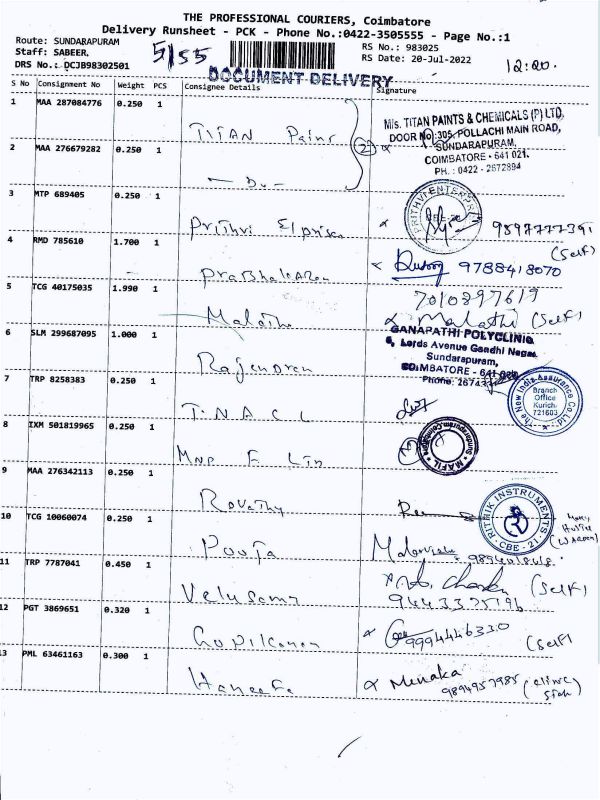 THE PROFESSIONAL COURIERS, Coimbatore
Delivery Runsheet - PCK - Phone No.:0422-3505555 - Page No.:1
Route: SUNDARAPURAM
Staff: SABEER.
DRS No.: DCJB98302501
5/55
RS No.: 983025
RS Date: 20-Jul-2022
12:20.
DOCUMENT DELIVERY
S No Consignment No Weight PCS Consignee Details Signature
1 MAA 287084776 0.250 1
TITAN Pains
M/s. TITAN PAINTS & CHEMICALS (P) LTD,
DOOR No:305, POLLACHI MAIN ROAD,
SUNDARAPURAM,
COIMBATORE - 641 021.
PH.: 0422 - 2672894
2 MAA 276679282 0.250 1
2
3 MTP 689405 0.250 1
Prithvi
PRITHVI ENTERPRI
4 RMD 785610 1.700 1
Prabhakaran
9788418070
(Self)
5 TCG 40175035 1.990 1
7010897619
Malathi
Malathi (Self)
6 SLM 299687095 1.000 1
Rajendren
GANAPATHI POLYCLINIC
6, Lords Avenue Gandhi Nagar
Sundarapuram,
COIMBATORE - 641
Phone: 26743
7 TRP 8258383 0.250 1
T.N.A.C.L
The New India Assurance Co. Ltd
Branch
Office
Kurichi
721603
8 IXM 501819965 0.250 1
MNP F LTD
MAFIL
Sundarapuram Coimbatore
9 MAA 276342113 0.250 1
Revathy
10 TCG 10060074 0.250 1
Pooja
RITHIK INSTRUMENTS
CBE - 21.
11 TRP 7787041 0.450 1
Velusamy
(Self)
94433375196
12 PGT 3869651 0.320 1
9994446330
(Self)
13 PML 63461163 0.300 1
Haneefa
Menaka
9894957985